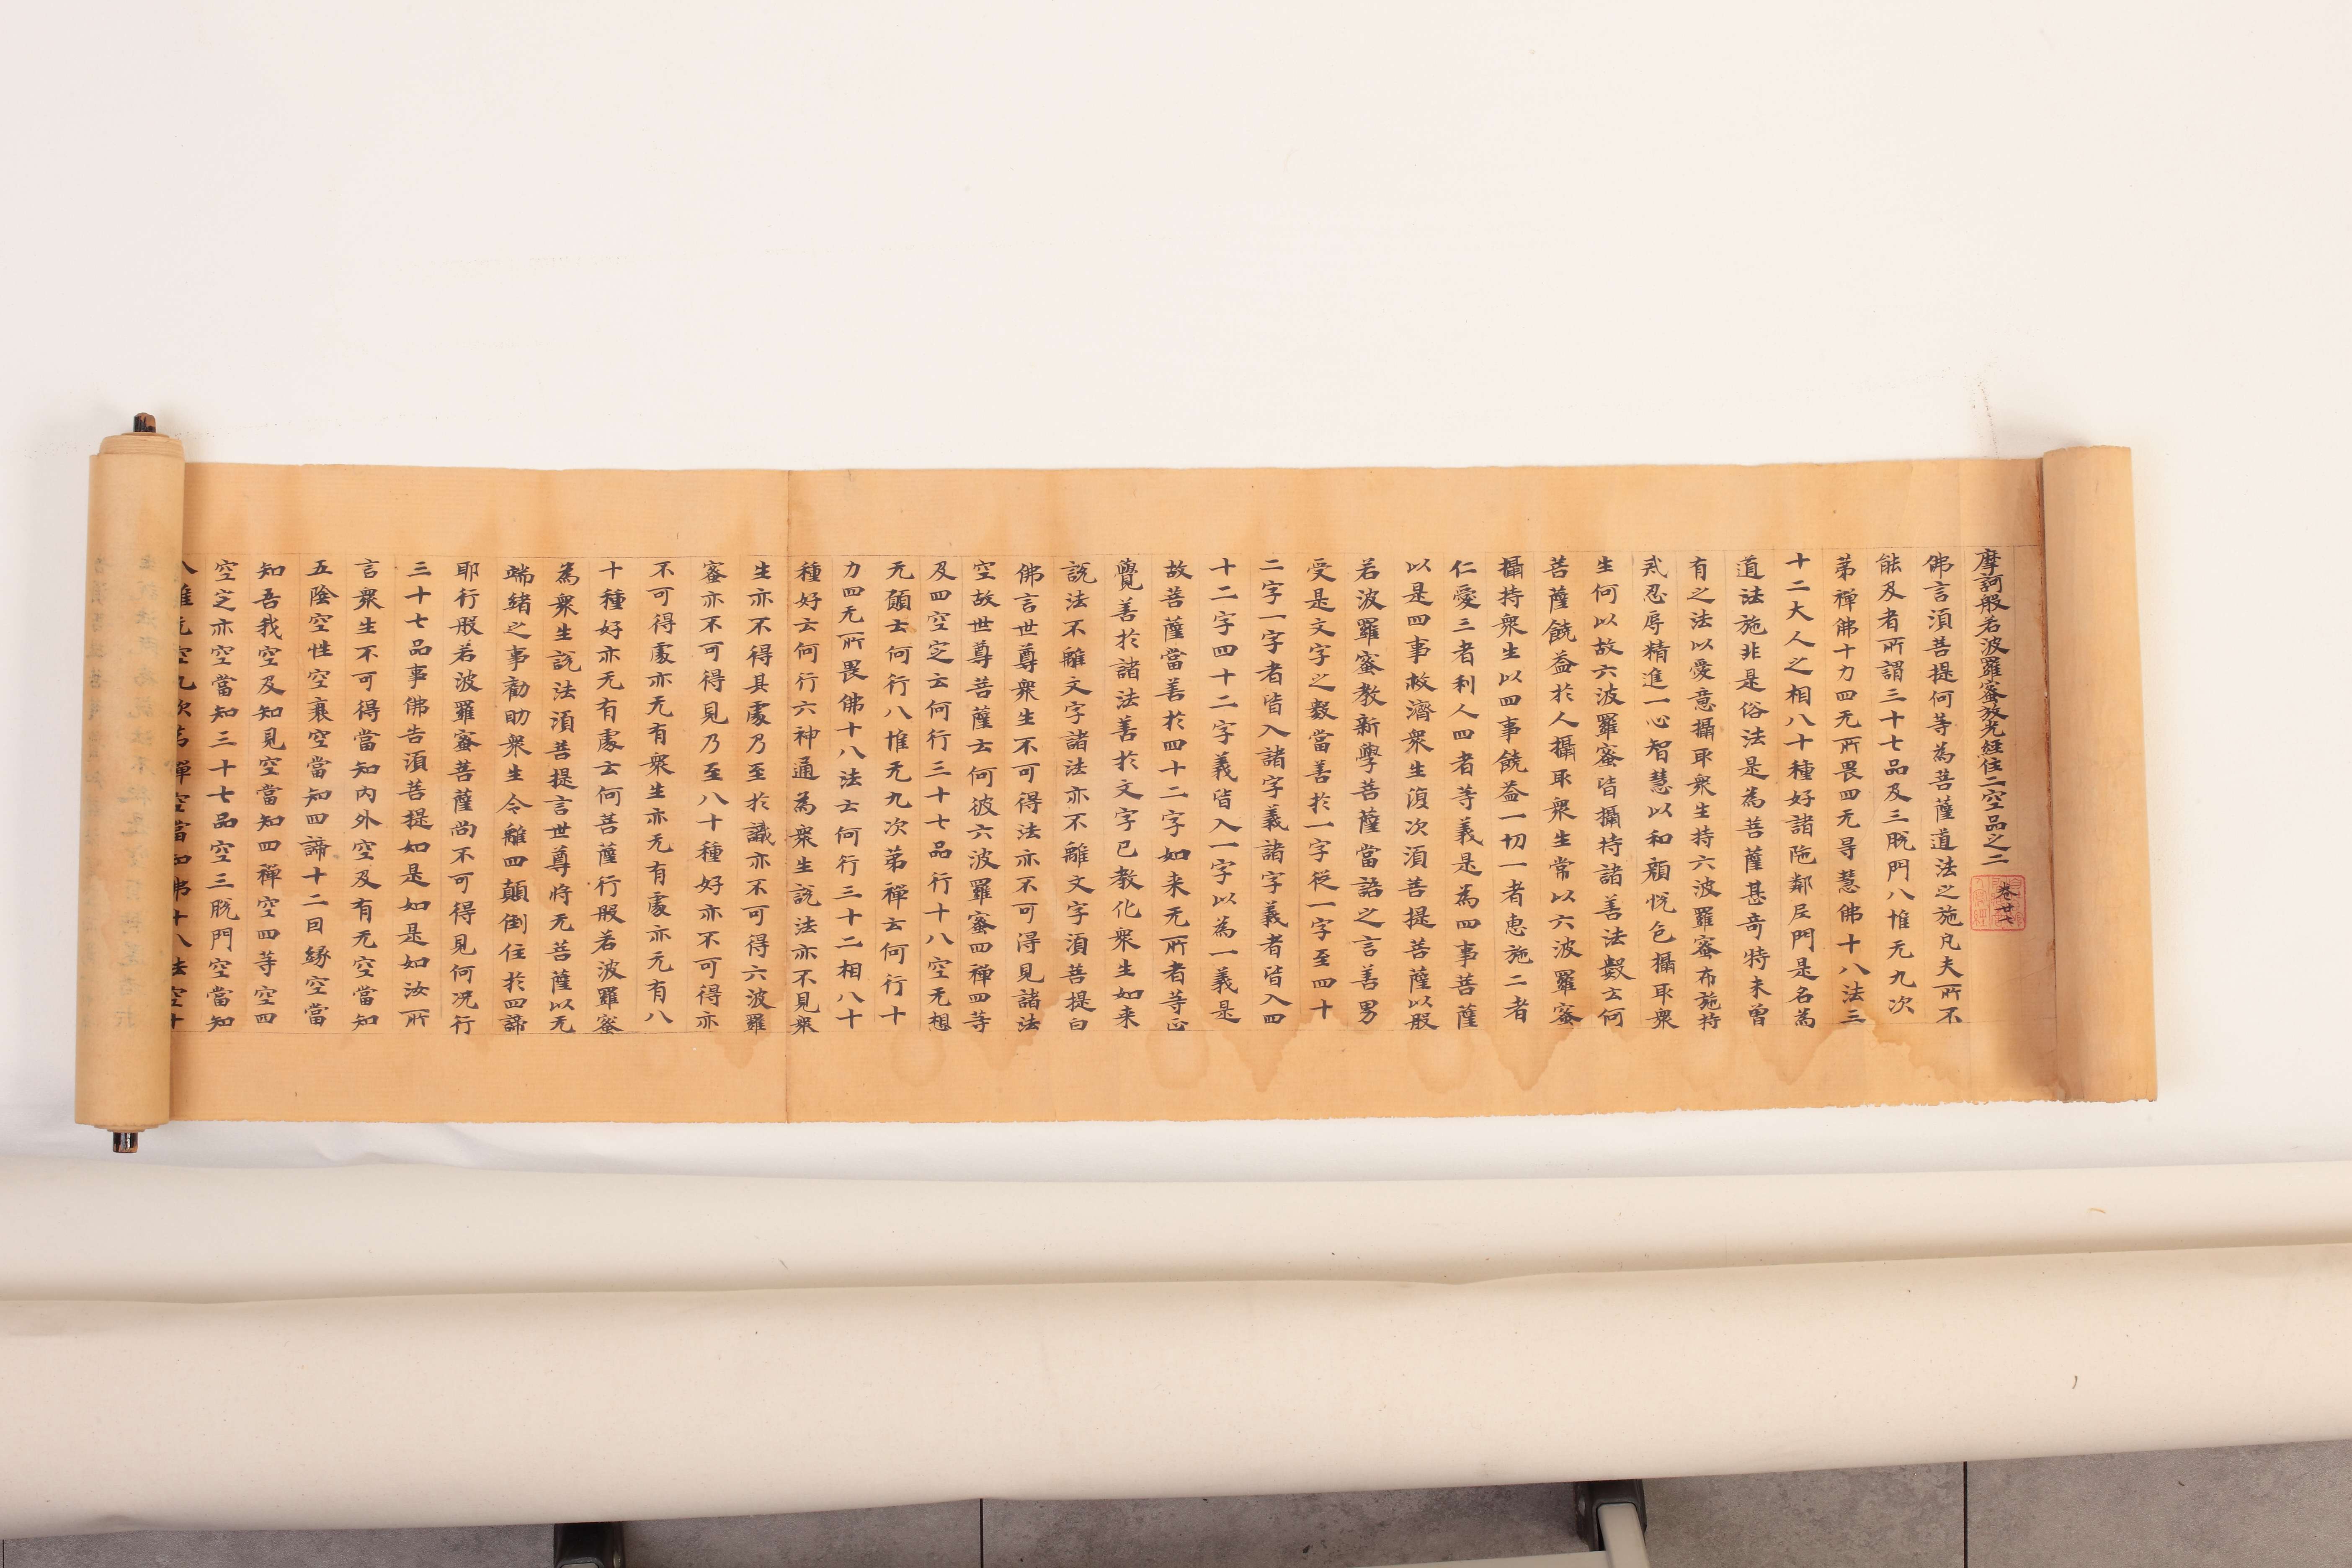 摩訶般若波羅蜜放光經住二空品之二 卷廿七
佛言湏菩提何等為菩薩道法之施凡夫所不
能及者所謂三十七品及三脫門八惟无九次
苐禪佛十力四无所畏四无㝵慧佛十八法三
十二大人之相八十種好諸陁鄰尼門是名為
道法施非是俗法是為菩薩甚奇特未曾
有之法以愛意攝取衆生持六波羅蜜布施持
戒忍辱精進一心智慧以和顏悅色攝取衆
生何以故六波羅蜜皆攝持諸善法數云何
菩薩饒益於人攝取衆生常以六波羅蜜
攝持衆生以四事饒益一切一者惠施二者
仁愛三者利人四者等義是為四事菩薩
以是四事救濟衆生復次湏菩提菩薩以般
若波羅蜜教新學菩薩當語之言善男
受是文字之數當善於一字從一字至四十
二字一字者皆入諸字義諸字義者皆入四
十二字四十二字義皆入一字以為一義是
故菩薩當善於四十二字如来无所著等正
覺善於諸法善於文字已教化衆生如来
說法不離文字諸法亦不離文字湏菩提白
佛言世尊衆生不可得法亦不可得見諸法
空故世尊菩薩云何彼六波羅蜜四禪四等
及四空定云何行三十七品行十八空无想
无願云何行八惟无九次苐禪云何行十
力四无所畏佛十八法云何行三十二相八十
種好云何行六神通為衆生說法亦不見衆
生亦不得其處乃至於識亦不可得六波羅
蜜亦不可得見乃至八十種好亦不可得亦
不可得處亦无有衆生亦无有處亦无有八
十種好亦无有處云何菩薩行般若波羅蜜
為衆生說法湏菩提言世尊將无菩薩以无
端緒之事勸助衆生令離四顛倒住於四諦
耶行般若波羅蜜菩薩尚不可得見何況行
三十七品事佛告湏菩提如是如是如汝所
言衆生不可得當知內外空及有无空當知
五陰空性空衰空當知四諦十二因緣空當
知吾我空及知見空當知四禪空四等空四
空定亦空當知三十七品空三脫門空當知
八惟无空九次苐禪空當知佛十八法空十